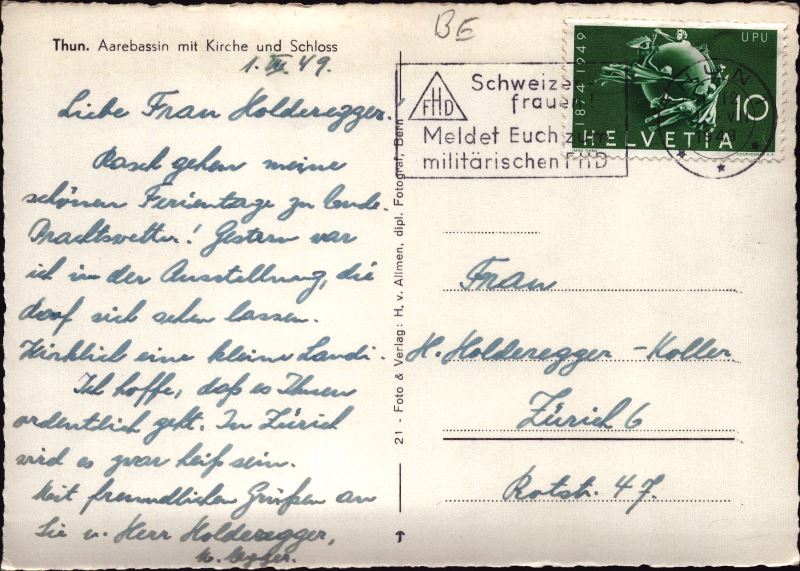 Thun. Aarebassin mit Kirche und Schloss
1. VII. 49.
Liebe Frau Holderegger!
Rasch gehen meine
schönen Ferientage zu Ende.
Prachtswetter! Gestern war
ich in der Ausstellung, die
darf sich sehen lassen.
Wirklich eine kleine Landi.
Ich hoffe, daß es Ihnen
ordentlich geht. In Zürich
wird es zwar heiß sein.
Mit freundlichen Grüßen an
Sie u. Herr Holderegger,
21 - Foto & Verlag: H. v. Allmen, dipl. Fotograf, Bern
BE
FHD
Schweizer
frauen!
Meldet Euch zum
militärischen FHD
THUN
1874 1949
UPU
10
HELVETIA
Frau
H. Holderegger-Koller
Zürich 6
Rotstr. 47.